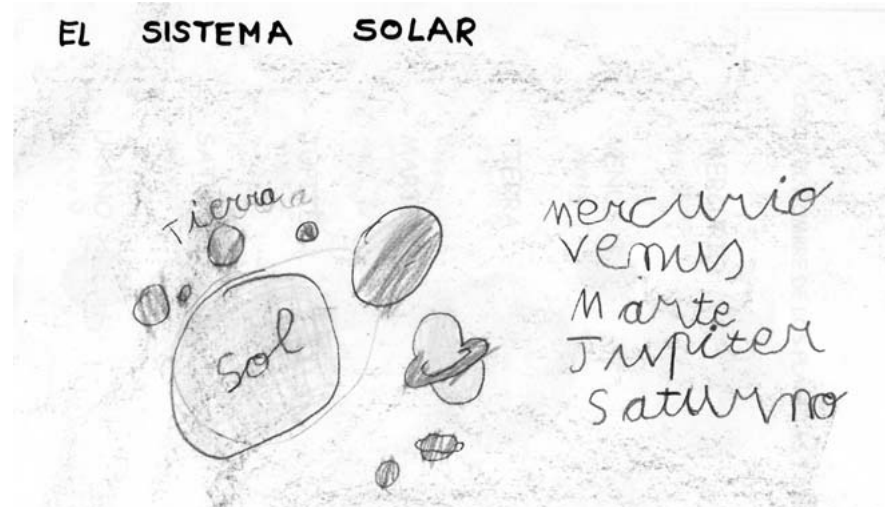 EL SISTEMA SOLAR
Tierra
Sol
mercurio
venus
Marte
Jupiter
Saturno